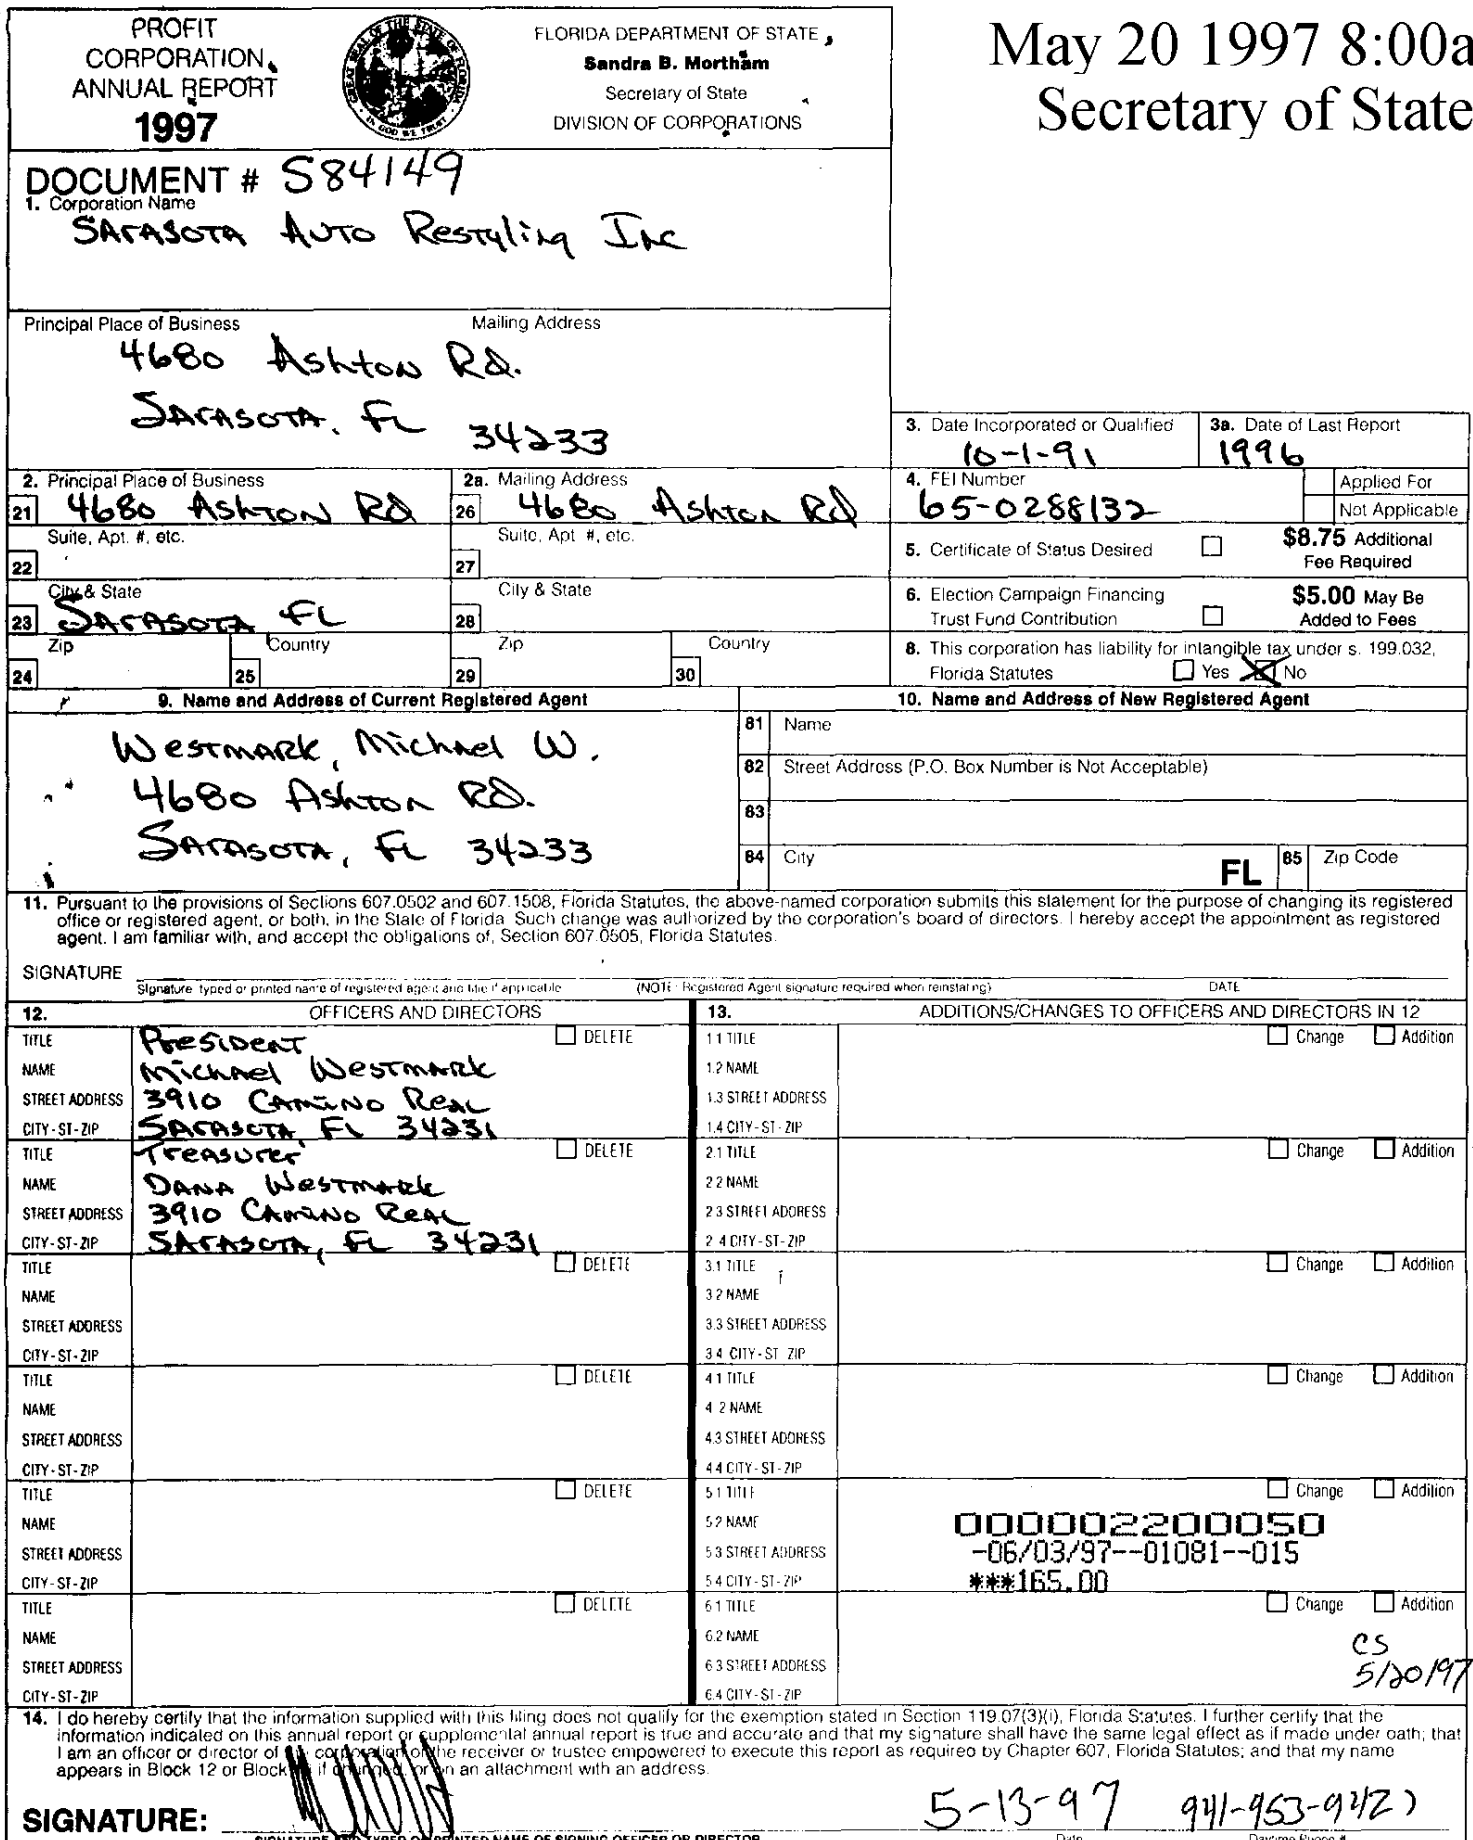 PROFIT
CORPORATION
ANNUAL REPORT
1997
FLORIDA DEPARTMENT OF STATE
Sandra B. Mortham
Secretary of State
DIVISION OF CORPORATIONS
May 20 1997 8:00a
Secretary of State
DOCUMENT # S84149
1. Corporation Name
Sarasota Auto Restyling Inc
Principal Place of Business Mailing Address
4680 Ashton Rd.
Sarasota, FL 34233
3. Date Incorporated or Qualified
10-1-91
3a. Date of Last Report
1996
2. Principal Place of Business
21 4680 Ashton Rd
2a. Mailing Address
26 4680 Ashton Rd
4. FEI Number
65-0288132
Applied For
Not Applicable
Suite, Apt. #, etc.
22
Suite, Apt #, etc.
27
5. Certificate of Status Desired
$8.75 Additional
Fee Required
City & State
23 Sarasota, FL
City & State
28
6. Election Campaign Financing
Trust Fund Contribution
$5.00 May Be
Added to Fees
Zip
24
Country
25
Zip
29
Country
30
8. This corporation has liability for intangible tax under s. 199.032,
Florida Statutes Yes No
9. Name and Address of Current Registered Agent
Westmark, Michael W.
4680 Ashton Rd.
Sarasota, FL 34233
10. Name and Address of New Registered Agent
81 Name
82 Street Address (P.O. Box Number is Not Acceptable)
83
84 City FL 85 Zip Code
11. Pursuant to the provisions of Sections 607.0502 and 607.1508, Florida Statutes, the above-named corporation submits this statement for the purpose of changing its registered
office or registered agent, or both, in the State of Florida. Such change was authorized by the corporation's board of directors. I hereby accept the appointment as registered
agent. I am familiar with, and accept the obligations of, Section 607.0505, Florida Statutes.
SIGNATURE
Signature typed or printed name of registered agent and title if applicable (NOTE: Registered Agent signature required when reinstating) DATE
12. OFFICERS AND DIRECTORS
13. ADDITIONS/CHANGES TO OFFICERS AND DIRECTORS IN 12
TITLE President DELETE
NAME Michael Westmark
STREET ADDRESS 3910 Camino Real
CITY-ST-ZIP Sarasota, FL 34231
1.1 TITLE Change Addition
1.2 NAME
1.3 STREET ADDRESS
1.4 CITY-ST-ZIP
TITLE Treasurer DELETE
NAME Dana Westmark
STREET ADDRESS 3910 Camino Real
CITY-ST-ZIP Sarasota, FL 34231
2.1 TITLE Change Addition
2.2 NAME
2.3 STREET ADDRESS
2.4 CITY-ST-ZIP
TITLE DELETE
NAME
STREET ADDRESS
CITY-ST-ZIP
3.1 TITLE Change Addition
3.2 NAME
3.3 STREET ADDRESS
3.4 CITY-ST-ZIP
TITLE DELETE
NAME
STREET ADDRESS
CITY-ST-ZIP
4.1 TITLE Change Addition
4.2 NAME
4.3 STREET ADDRESS
4.4 CITY-ST-ZIP
TITLE DELETE
NAME
STREET ADDRESS
CITY-ST-ZIP
5.1 TITLE Change Addition
5.2 NAME
5.3 STREET ADDRESS
5.4 CITY-ST-ZIP
000002200050
-06/03/97--01081--015
***165.00
TITLE DELETE
NAME
STREET ADDRESS
CITY-ST-ZIP
6.1 TITLE Change Addition
6.2 NAME
6.3 STREET ADDRESS
6.4 CITY-ST-ZIP
CS
5/20/97
14. I do hereby certify that the information supplied with this filing does not qualify for the exemption stated in Section 119.07(3)(i), Florida Statutes. I further certify that the
information indicated on this annual report or supplemental annual report is true and accurate and that my signature shall have the same legal effect as if made under oath; that
I am an officer or director of the corporation or the receiver or trustee empowered to execute this report as required by Chapter 607, Florida Statutes; and that my name
appears in Block 12 or Block if changed, or on an attachment with an address.
SIGNATURE:
5-13-97
SIGNATURE AND TYPED OR PRINTED NAME OF SIGNING OFFICER OR DIRECTOR Date Daytime Phone #